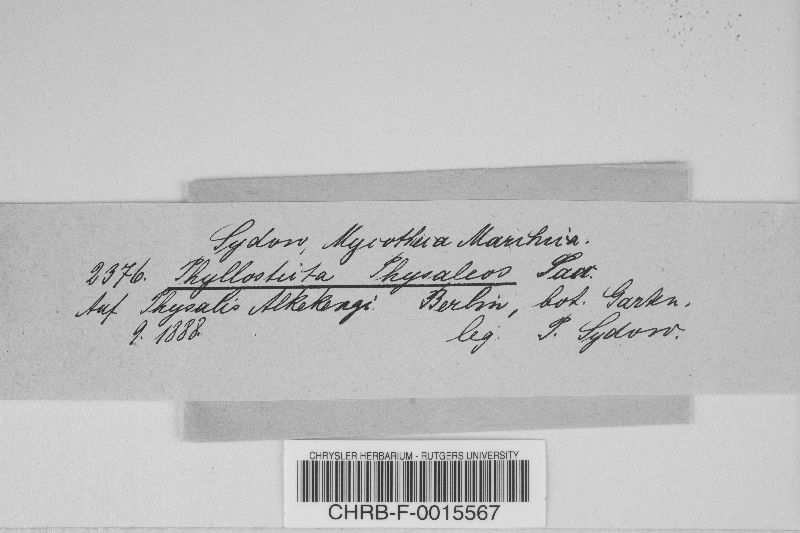 Sydow, Mycotheca Marchica.
2376. Phyllosticta Physaleos Sacc.
Auf Physalis Alkekengi. Berlin, bot. Garten.
9. 1888. leg. P. Sydow.
CHRYSLER HERBARIUM - RUTGERS UNIVERSITY
CHRB-F-0015567